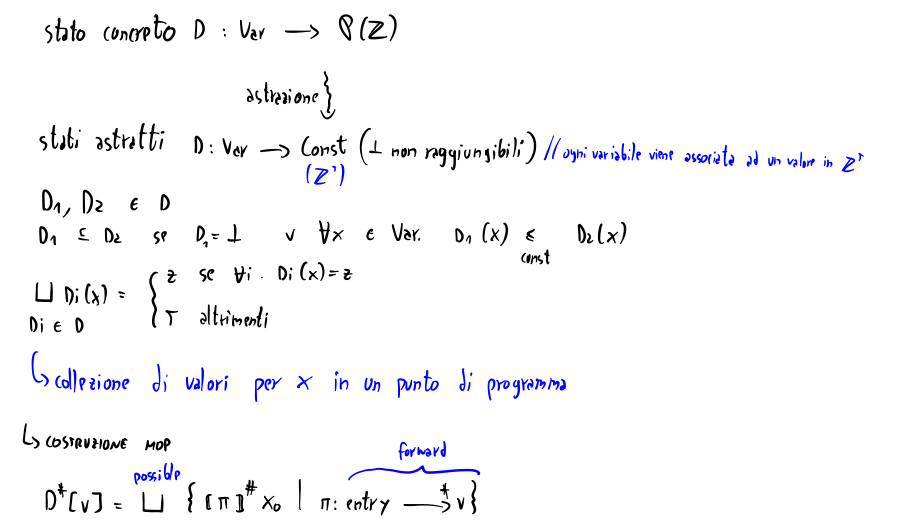 stato concreto D : Var → ℘(Z)
astrazione
stati astratti D: Var → Const (⊥ non raggiungibili) // ogni variabile viene associata ad un valore in Z^T
(Z^T)
D1, D2 ∈ D
D1 ⊑ D2 se D1 = ⊥ ∨ ∀x ∈ Var. D1(x) ≤const D2(x)
⊔ Di(x) = { z se ∀i. Di(x)=z
Di ∈ D { T altrimenti
↳ collezione di valori per x in un punto di programma
↳ COSTRUZIONE MOP
possible forward
D*[v] = ⊔ { [[π]]# x0 | π: entry →* v }